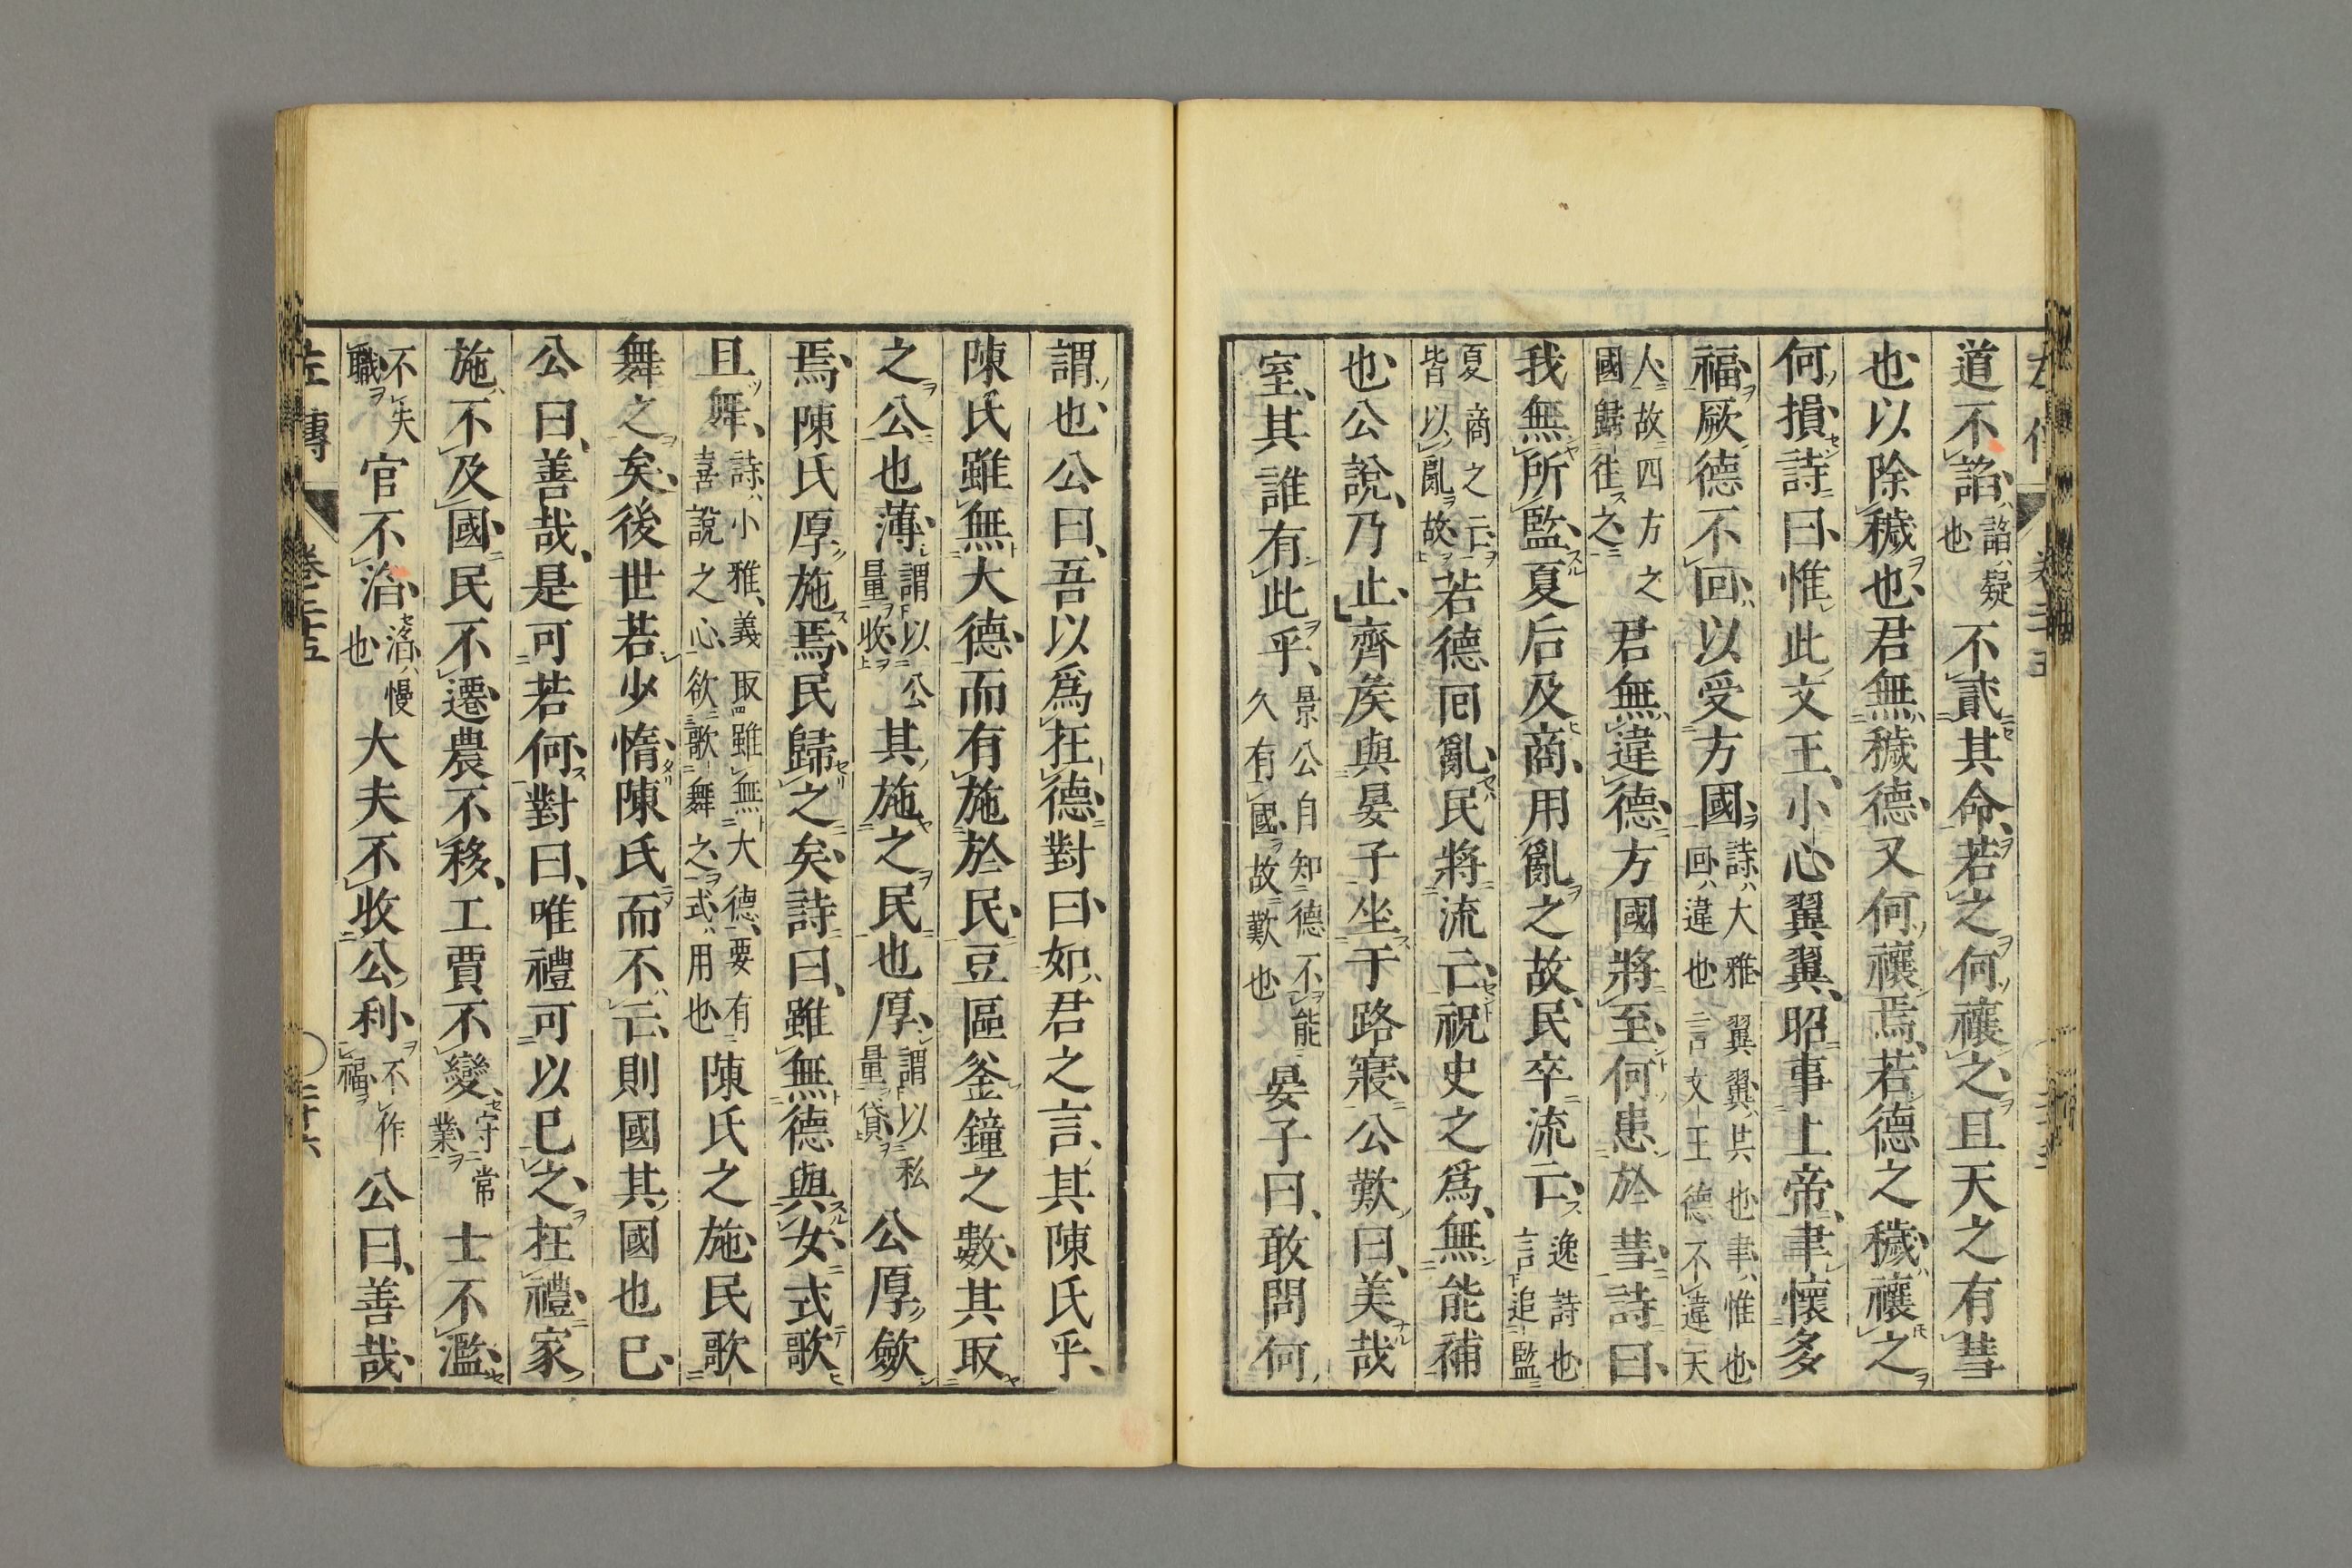 道不謟謟疑也不貳其命若之何禳之且天之有彗
也以除穢也君無穢德又何禳焉若德之穢禳之
何損詩曰惟此文王小心翼翼昭事上帝聿懷多
福厥德不回以受方國詩大雅翼翼共也聿惟也回違也言文王德不違天
人故四方之國歸往之君無違德方國將至何患於彗詩曰
我無所監夏后及商用亂之故民卒流亡逸詩也言追監
夏商之亡皆以亂故若德回亂民將流亡祝史之爲無能補
也公說乃止齊矦與晏子坐于路寢公歎曰美哉
室其誰有此乎景公自知德不能久有國故歎也晏子曰敢問何
謂也公曰吾以爲在德對曰如君之言其陳氏乎
陳氏雖無大德而有施於民豆區釜鐘之數其取
之公也薄謂以公量收其施之民也厚謂以私量貸公厚歛
焉陳氏厚施焉民歸之矣詩曰雖無德與女式歌
且舞詩小雅義取雖無大德要有喜說之心欲歌舞之式用也陳氏之施民歌
舞之矣後世若少惰陳氏而不亡則國其國也已
公曰善哉是可若何對曰唯禮可以已之在禮家
施不及國民不遷農不移工賈不變守常業士不濫
不失職官不滔滔慢也大夫不收公利不作福公曰善哉
左傳 卷二十五 二十六